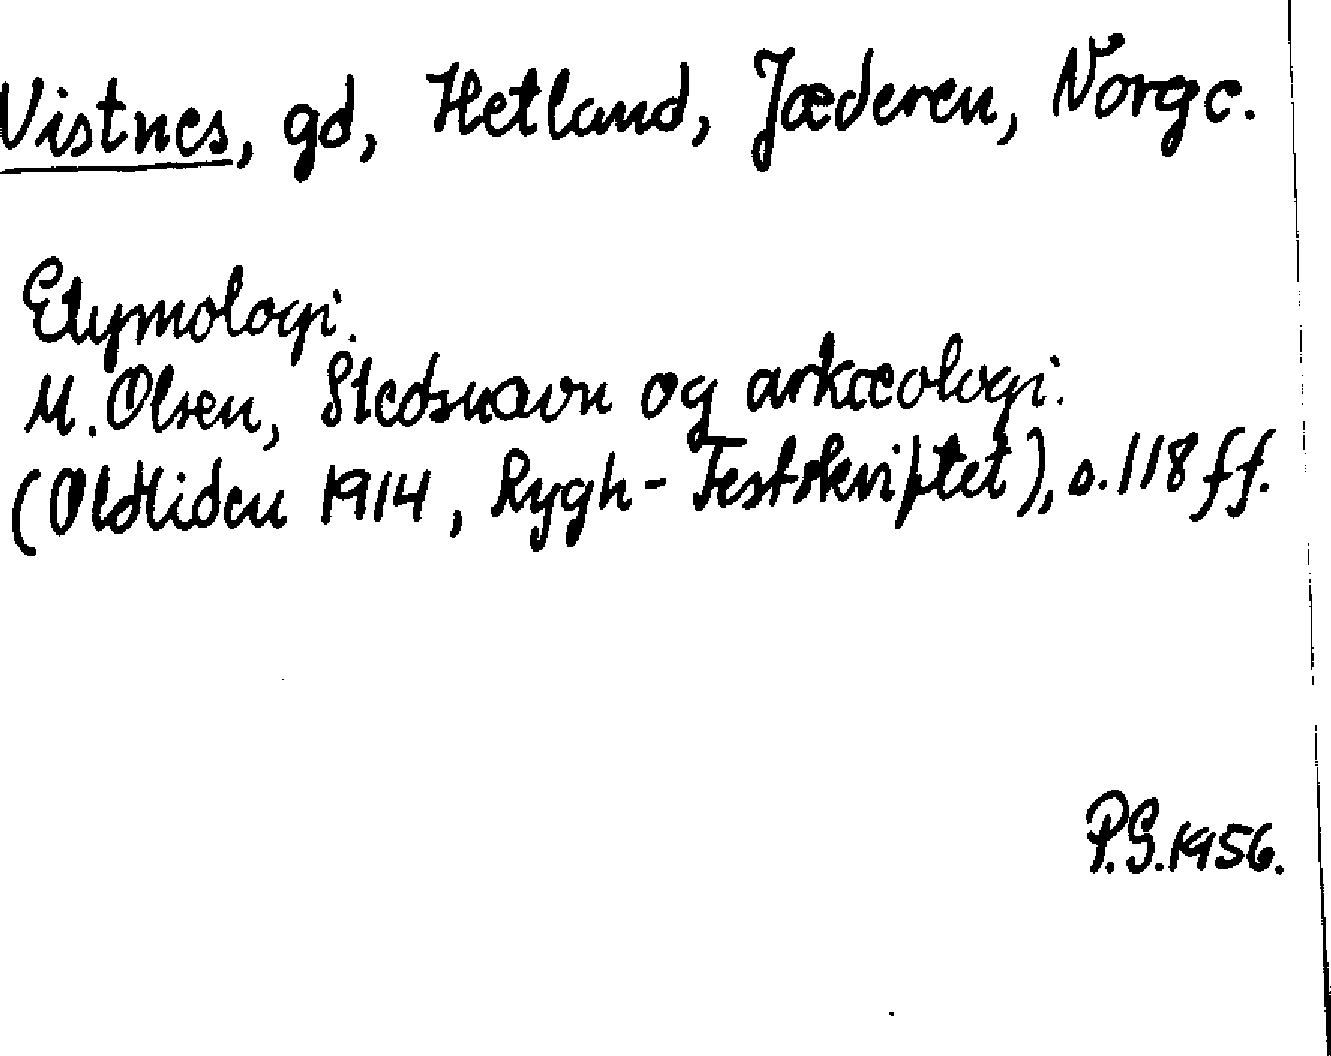 Vistnes, gd, Hetland, Jæderen, Norge.
Etymologi.
M. Olsen, Stedsnavn og arkæologi.
(Oldtiden 1914, Rygh-Festskriftet), s. 118 ff.
P.S. 1956.